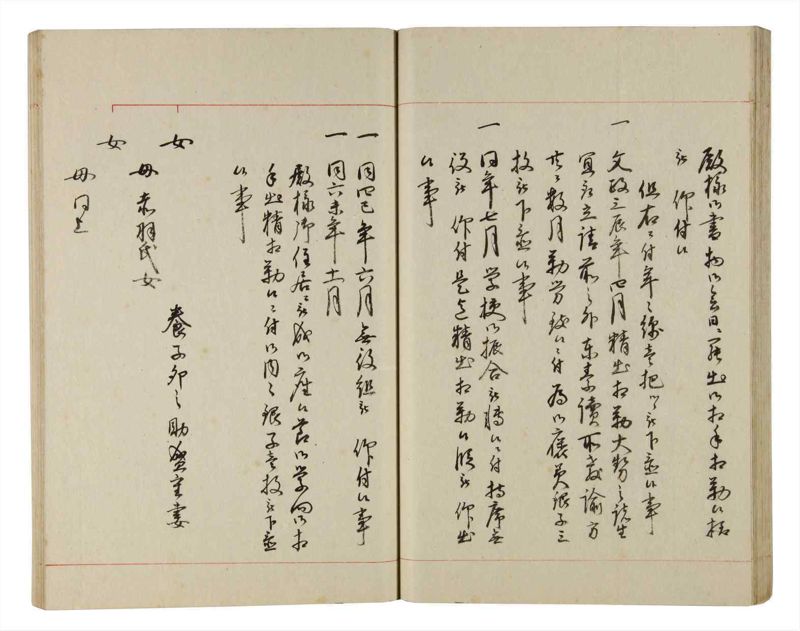 殿様御書物御会日ニ罷出御相手相勤候様
被 仰付候
但右ニ付年々綿壱把ツヽ被下置候事
一 文政三辰年四月精出相勤大勢之諸生
宜取立請前之外東素読所教諭方
共ニ数月勤労致候ニ付為御褒美銀子三
枚被下置候事
一 同年七月学校御振合被改候ニ付持席無
役被 仰付是迄精出相勤候段被 仰出
候事
一 同四巳年六月無役組被 仰付候事
一 同六未年十一月
殿様御住居被成御座候節御学問御相
手出精相勤候ニ付御内々銀子壱枚被下置
候事
女
母赤羽氏女
養子卯之助 室妻
女
母同上